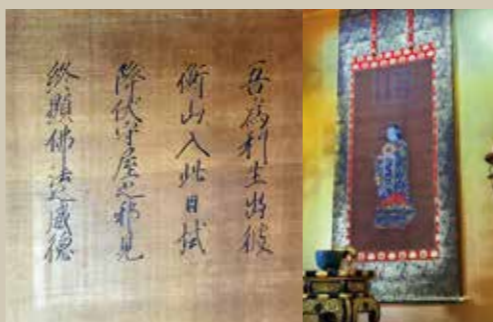 吾為利生出彼
衡山入此日域
降伏守屋之邪見
終顕佛法之威徳